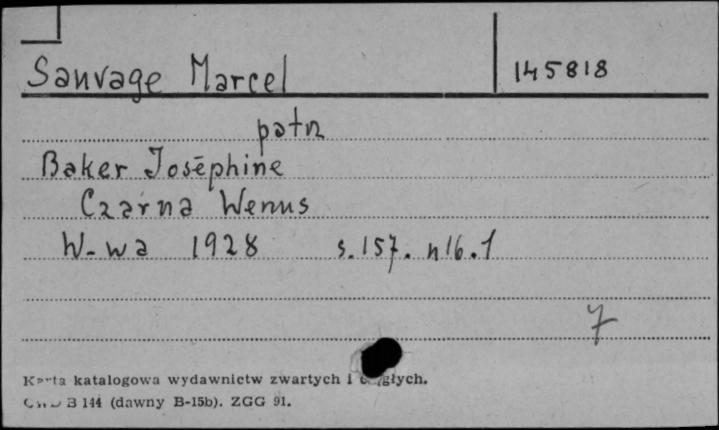 Sauvage Marcel 145818
patrz
Baker Josēphine
Czarna Wenus
W-wa 1928 s.157. nlb.1
7
Karta katalogowa wydawnictw zwartych i ciągłych.
B 144 (dawny B-15b). ZGG 91.